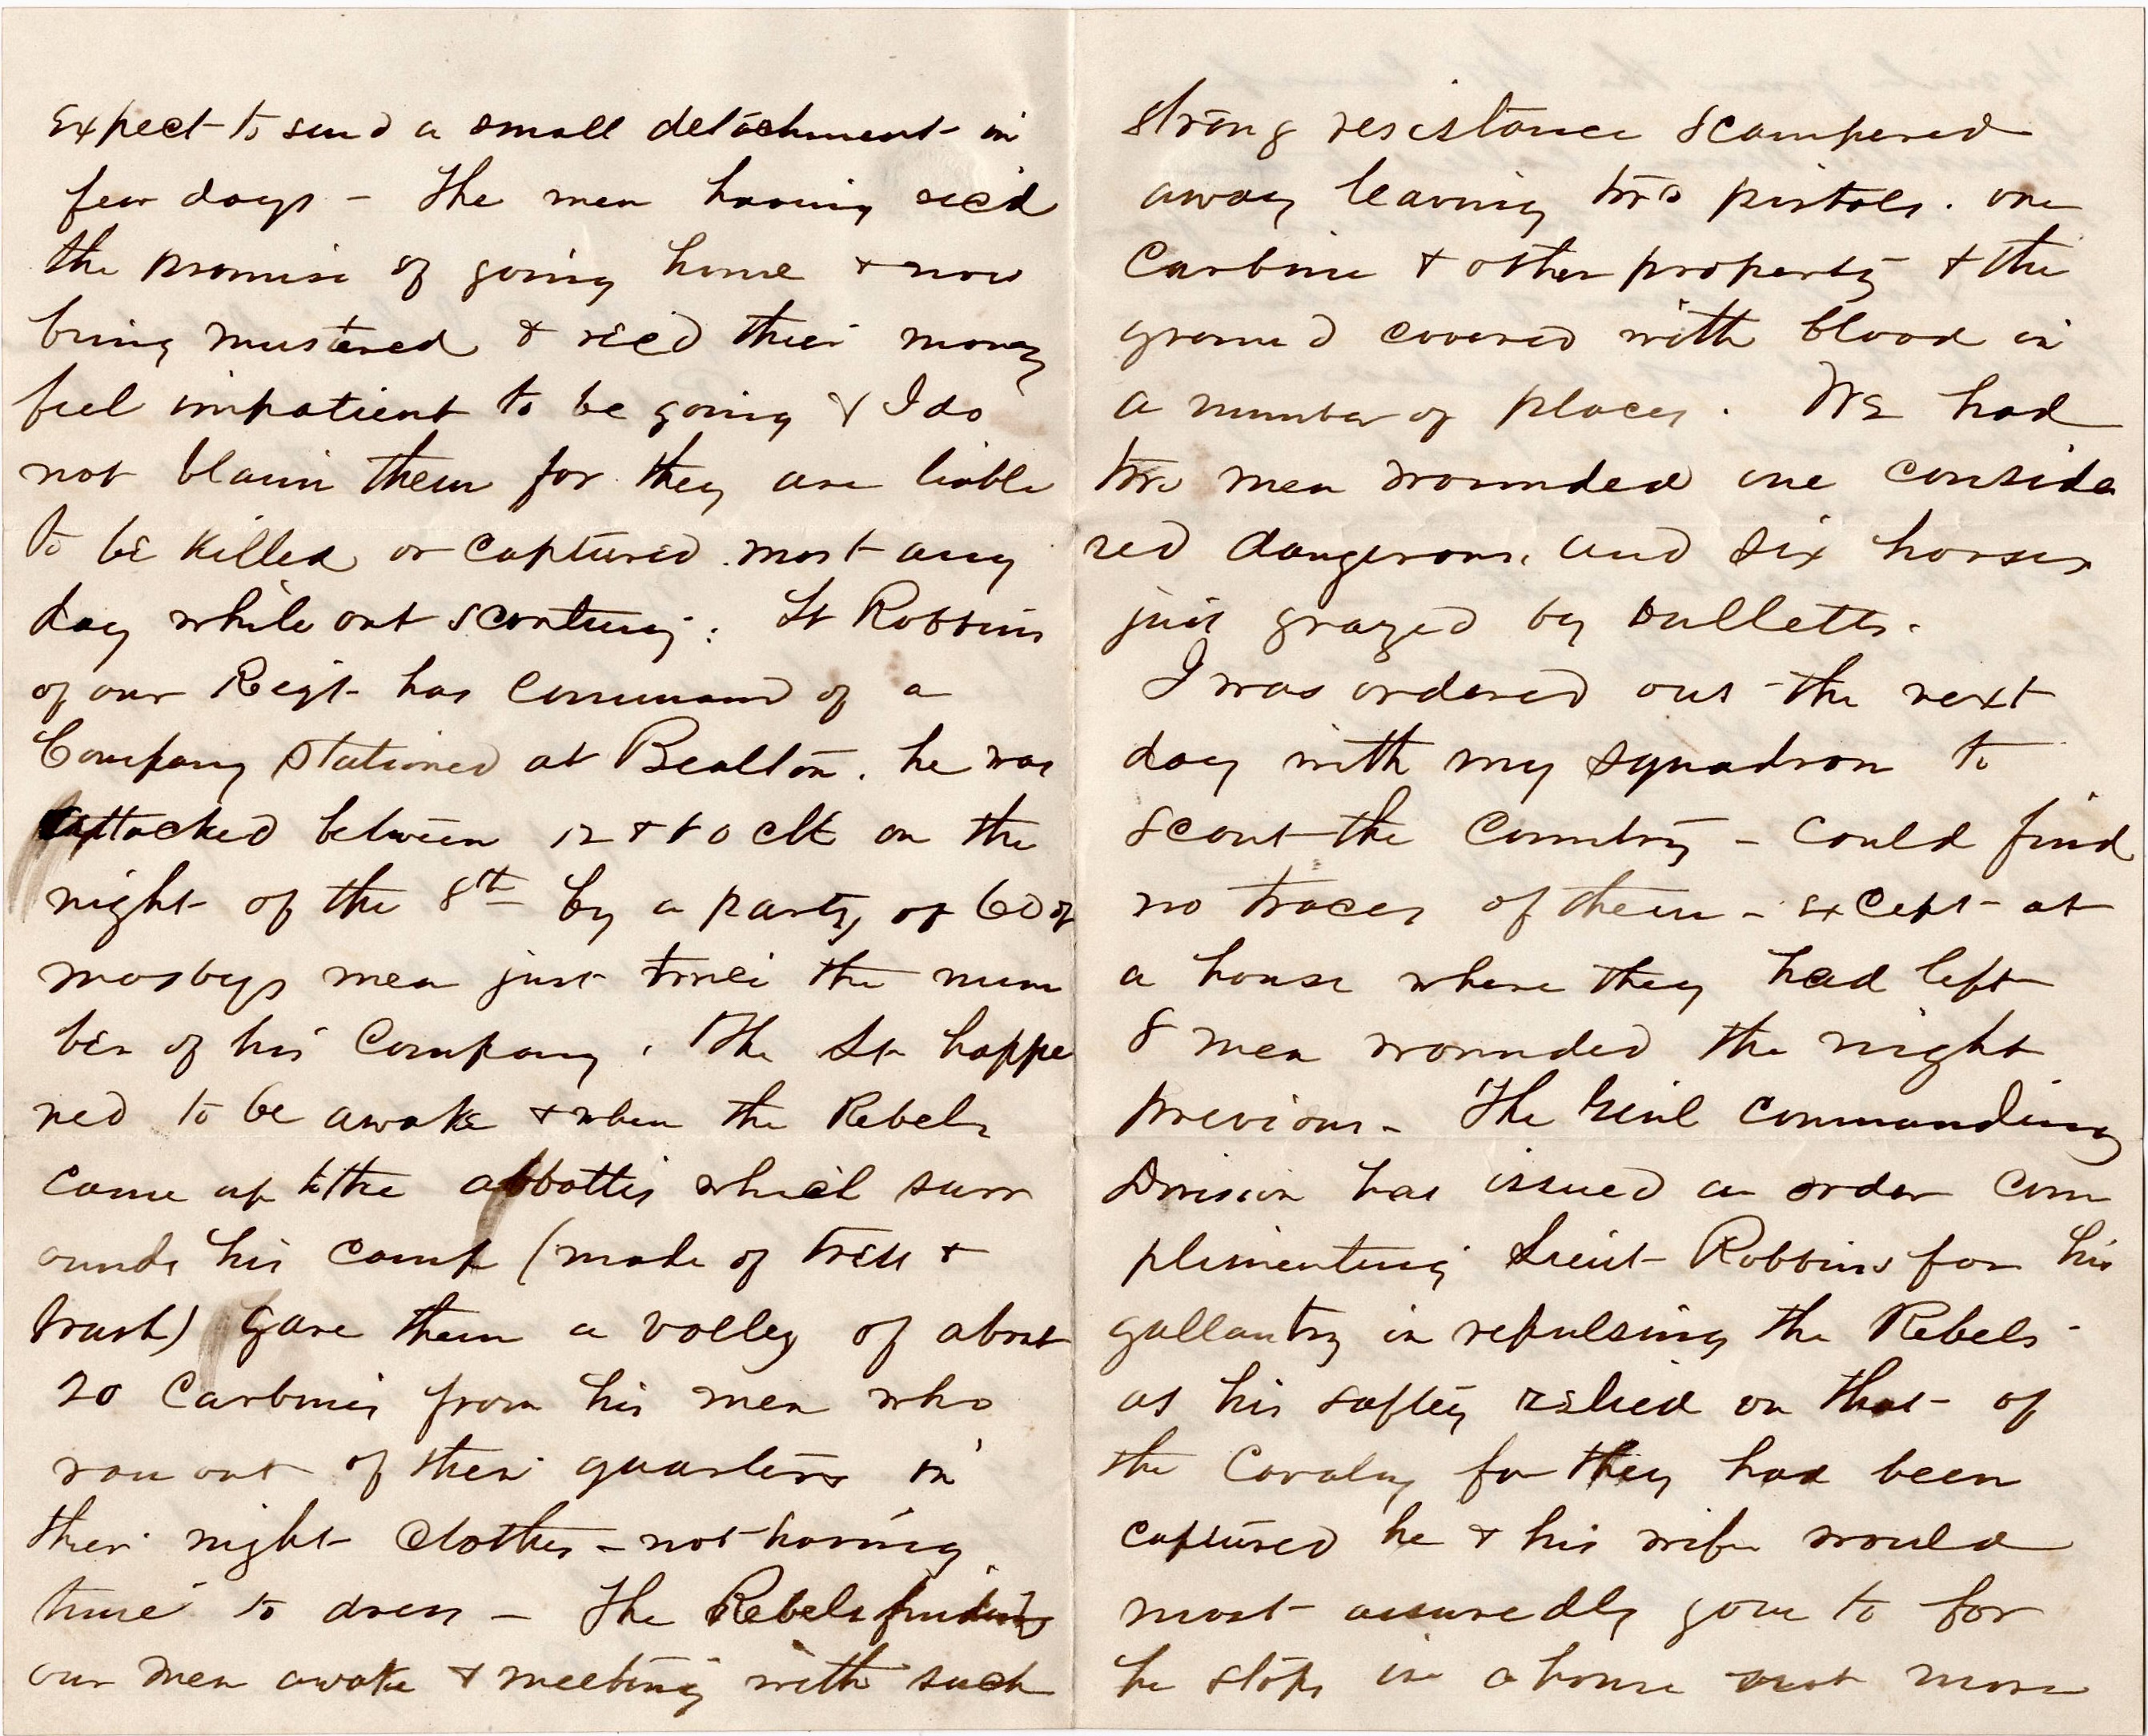 expect to send a small detachment in
few days - The men having rec'd
the promise of going home & now
being mustered & rec'd their money
feel impatient to be going & I do
not blaim them for they are liable
to be killed or captured most any
day while out scouting: Lt Robbins
of our Regt has command of a
Company stationed at Bealton. he was
attacked between 12 & 1 o clk on the
night of the 8th by a party of 60 of
mosbys men just twice the num
ber of his Company. The Lt happe
ned to be awake & when the Rebels
came up to the abbattis which surr
ounds his camp (made of trees &
brush) gave them a volley of about
20 Carbines from his men who
ran out of their quarters in
their night clothes - not having
time to dress - The Rebels finding
our men awake & meeting with such
strong resistance scampered
away leaving two pistols. one
Carbine & other property & the
ground covered with blood in
a number of places. We had
two men wounded one conside
red dangerous, and six horses
just grazed by bulletts.
I was ordered out the next
day with my squadron to
scout the Country - could find
no traces of them - except at
a house where they had left
8 men wounded the night
previous - The Genl commanding
Division has issued an order com
plimenting Lieut Robbins for his
gallantry in repulsing the Rebels -
as his saftey relied on that of
the Cavalry for they had been
captured he & his wife would
most assuredly gone to for
he stops in a house not more